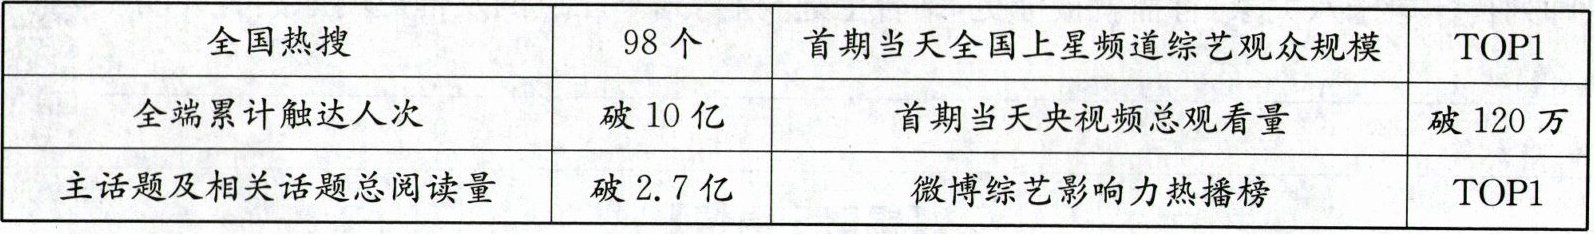 全国热搜 98个 首期当天全国上星频道综艺观众规模 TOP1
全端累计触达人次 破10亿 首期当天央视频总观看量 破120万
主话题及相关话题总阅读量 破2.7亿 微博综艺影响力热播榜 TOP1